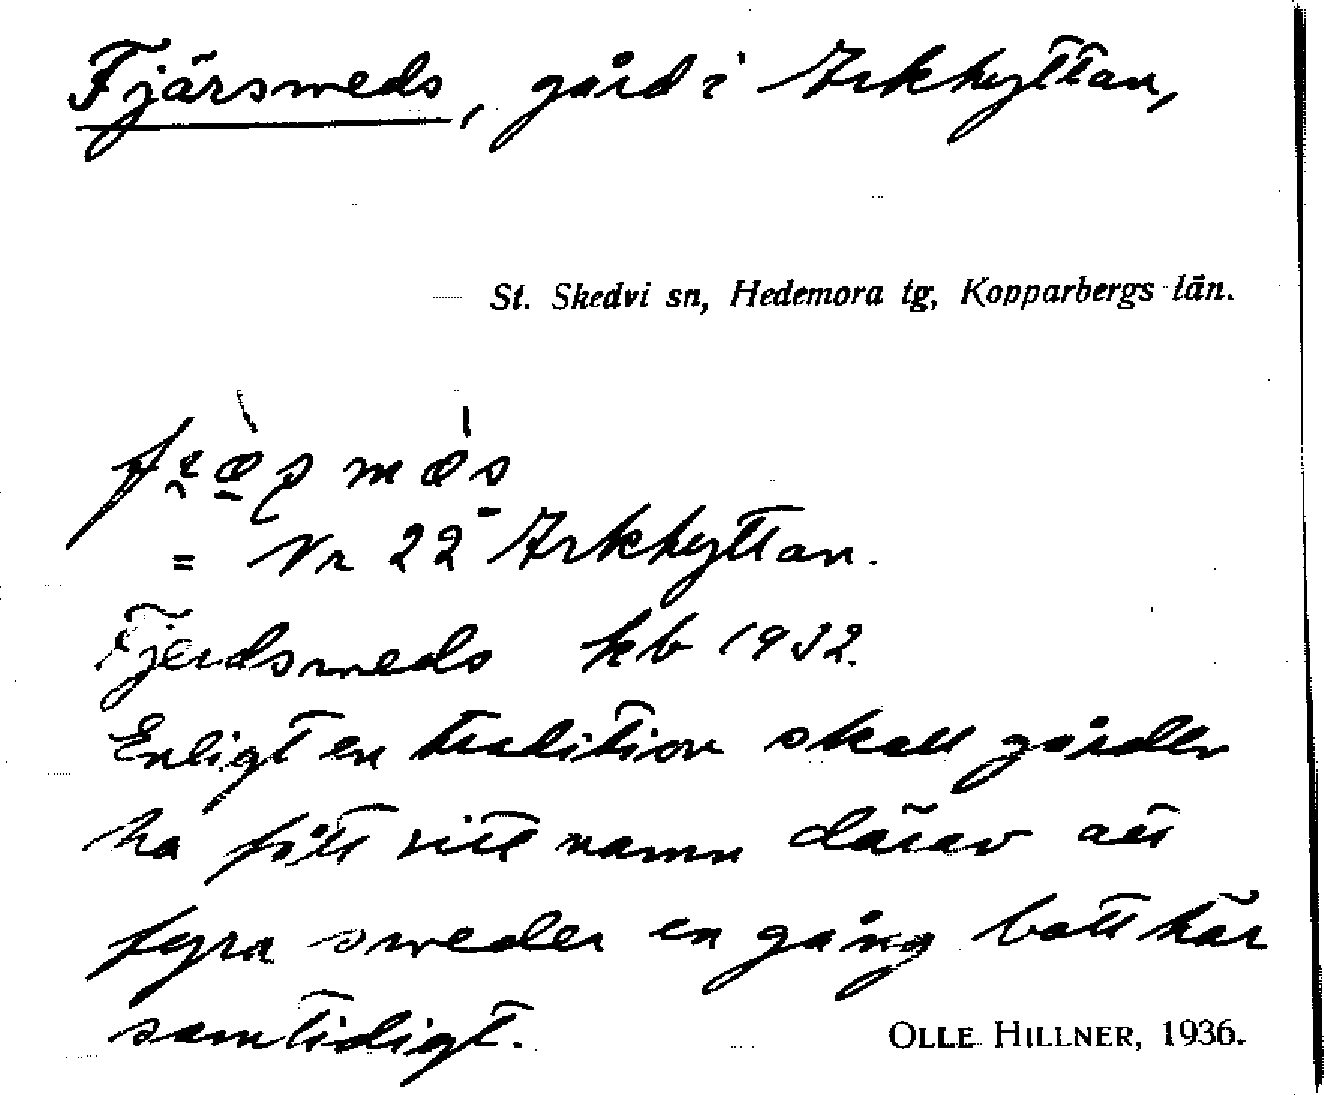 Fjärsmeds, gård i Arkhyttan,
St. Skedvi sn, Hedemora tg, Kopparbergs län.
= Nr 22 Arkhyttan.
Fjerdsmeds kb 1932.
Enligt en tradition skall gården
ha fått sitt namn därav att
fyra smeder en gång bott här
samtidigt.
OLLE HILLNER, 1936.